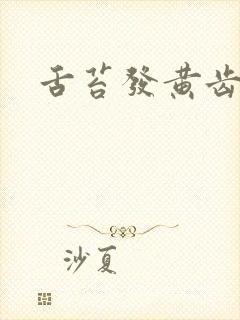 舌苔發黄齿
沙夏